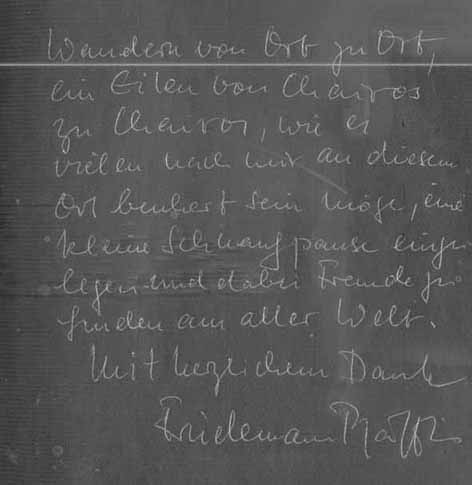 Wandern von Ort zu Ort,
ein Eilen von Chairos
zu Chairos, wie es
vielen nach mir an diesem
Ort beschert sein möge, eine
kleine Schnaufpause einzu
legen und dabei Freude zu
finden aus aller Welt.
Mit herzlichem Dank
Friedemann